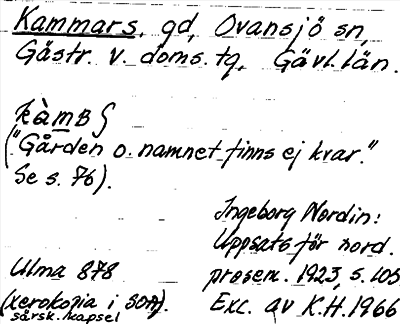 Kammars, gd, Ovansjö sn,
Gästr. v. doms. tg, Gävl. län.
kàmBS
("Gården o. namnet finns ej kvar."
Se s. 76).
Ingeborg Nordin:
Uppsats för nord.
prosem. 1923, s. 103
Ulma 878
(xerokopia i SOA).
särsk. kapsel
Exc. av K.H. 1966